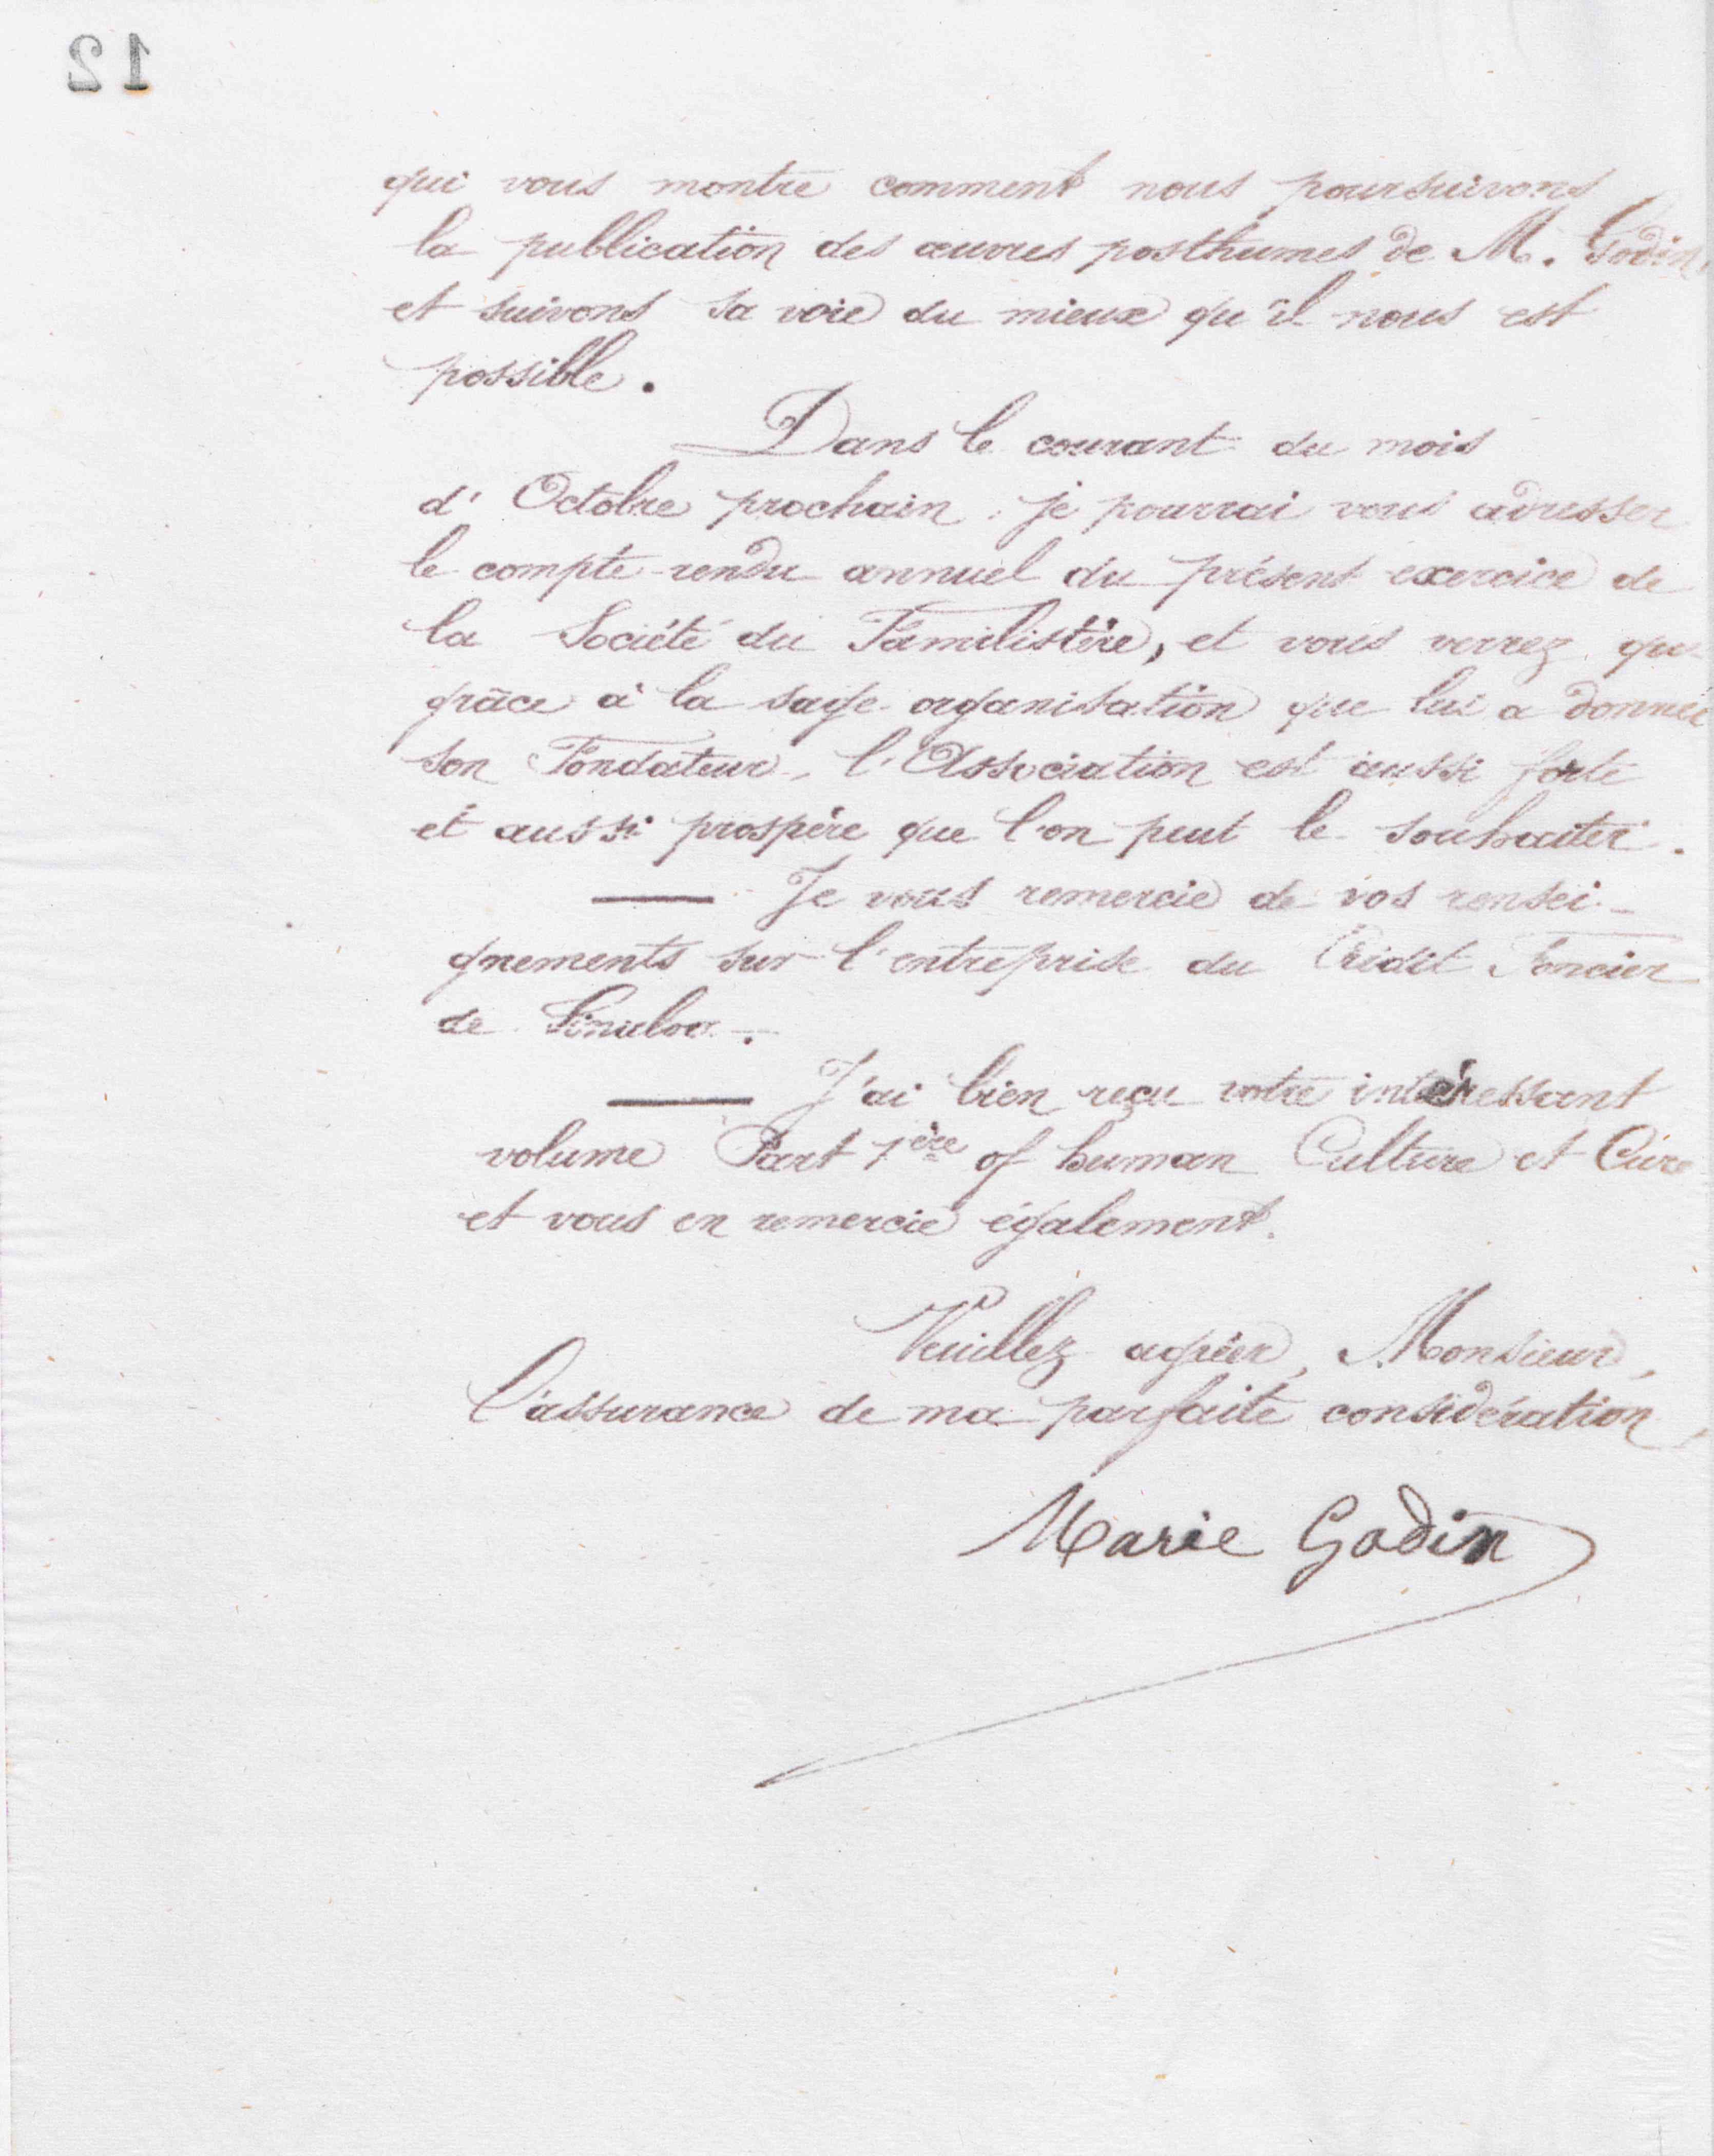 12
qui vous montre comment nous poursuivons
la publication des œuvres posthumes de M. Godin,
et suivons sa voie du mieux qu'il nous est
possible.
Dans le courant du mois
d'Octobre prochain je pourrai vous adresser
le compte-rendu annuel du présent exercice de
la Société du Familistère, et vous verrez que
grâce à la sage organisation que lui a donnée
son Fondateur, l'Association est aussi forte
et aussi prospère que l'on peut le souhaiter.
— Je vous remercie de vos rensei-
gnements sur l'entreprise du Crédit Foncier
de Sinaloa.
— J'ai bien reçu votre intéressant
volume Part 1ère of human Culture et Cure
et vous en remercie également.
Veuillez agréer, Monsieur,
l'assurance de ma parfaite considération,
Marie Godin